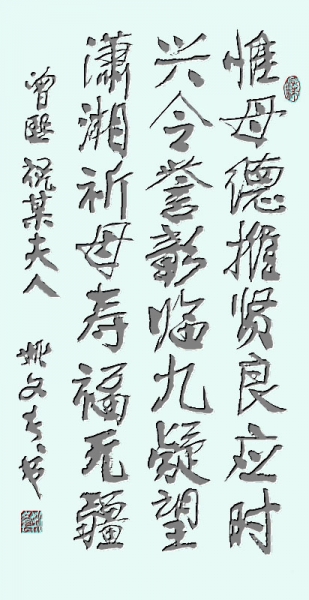 惟母德推贤良应时
兴令誉彰临九疑望
潇湘祈母寿福无疆
曾熙 祝某夫人
书